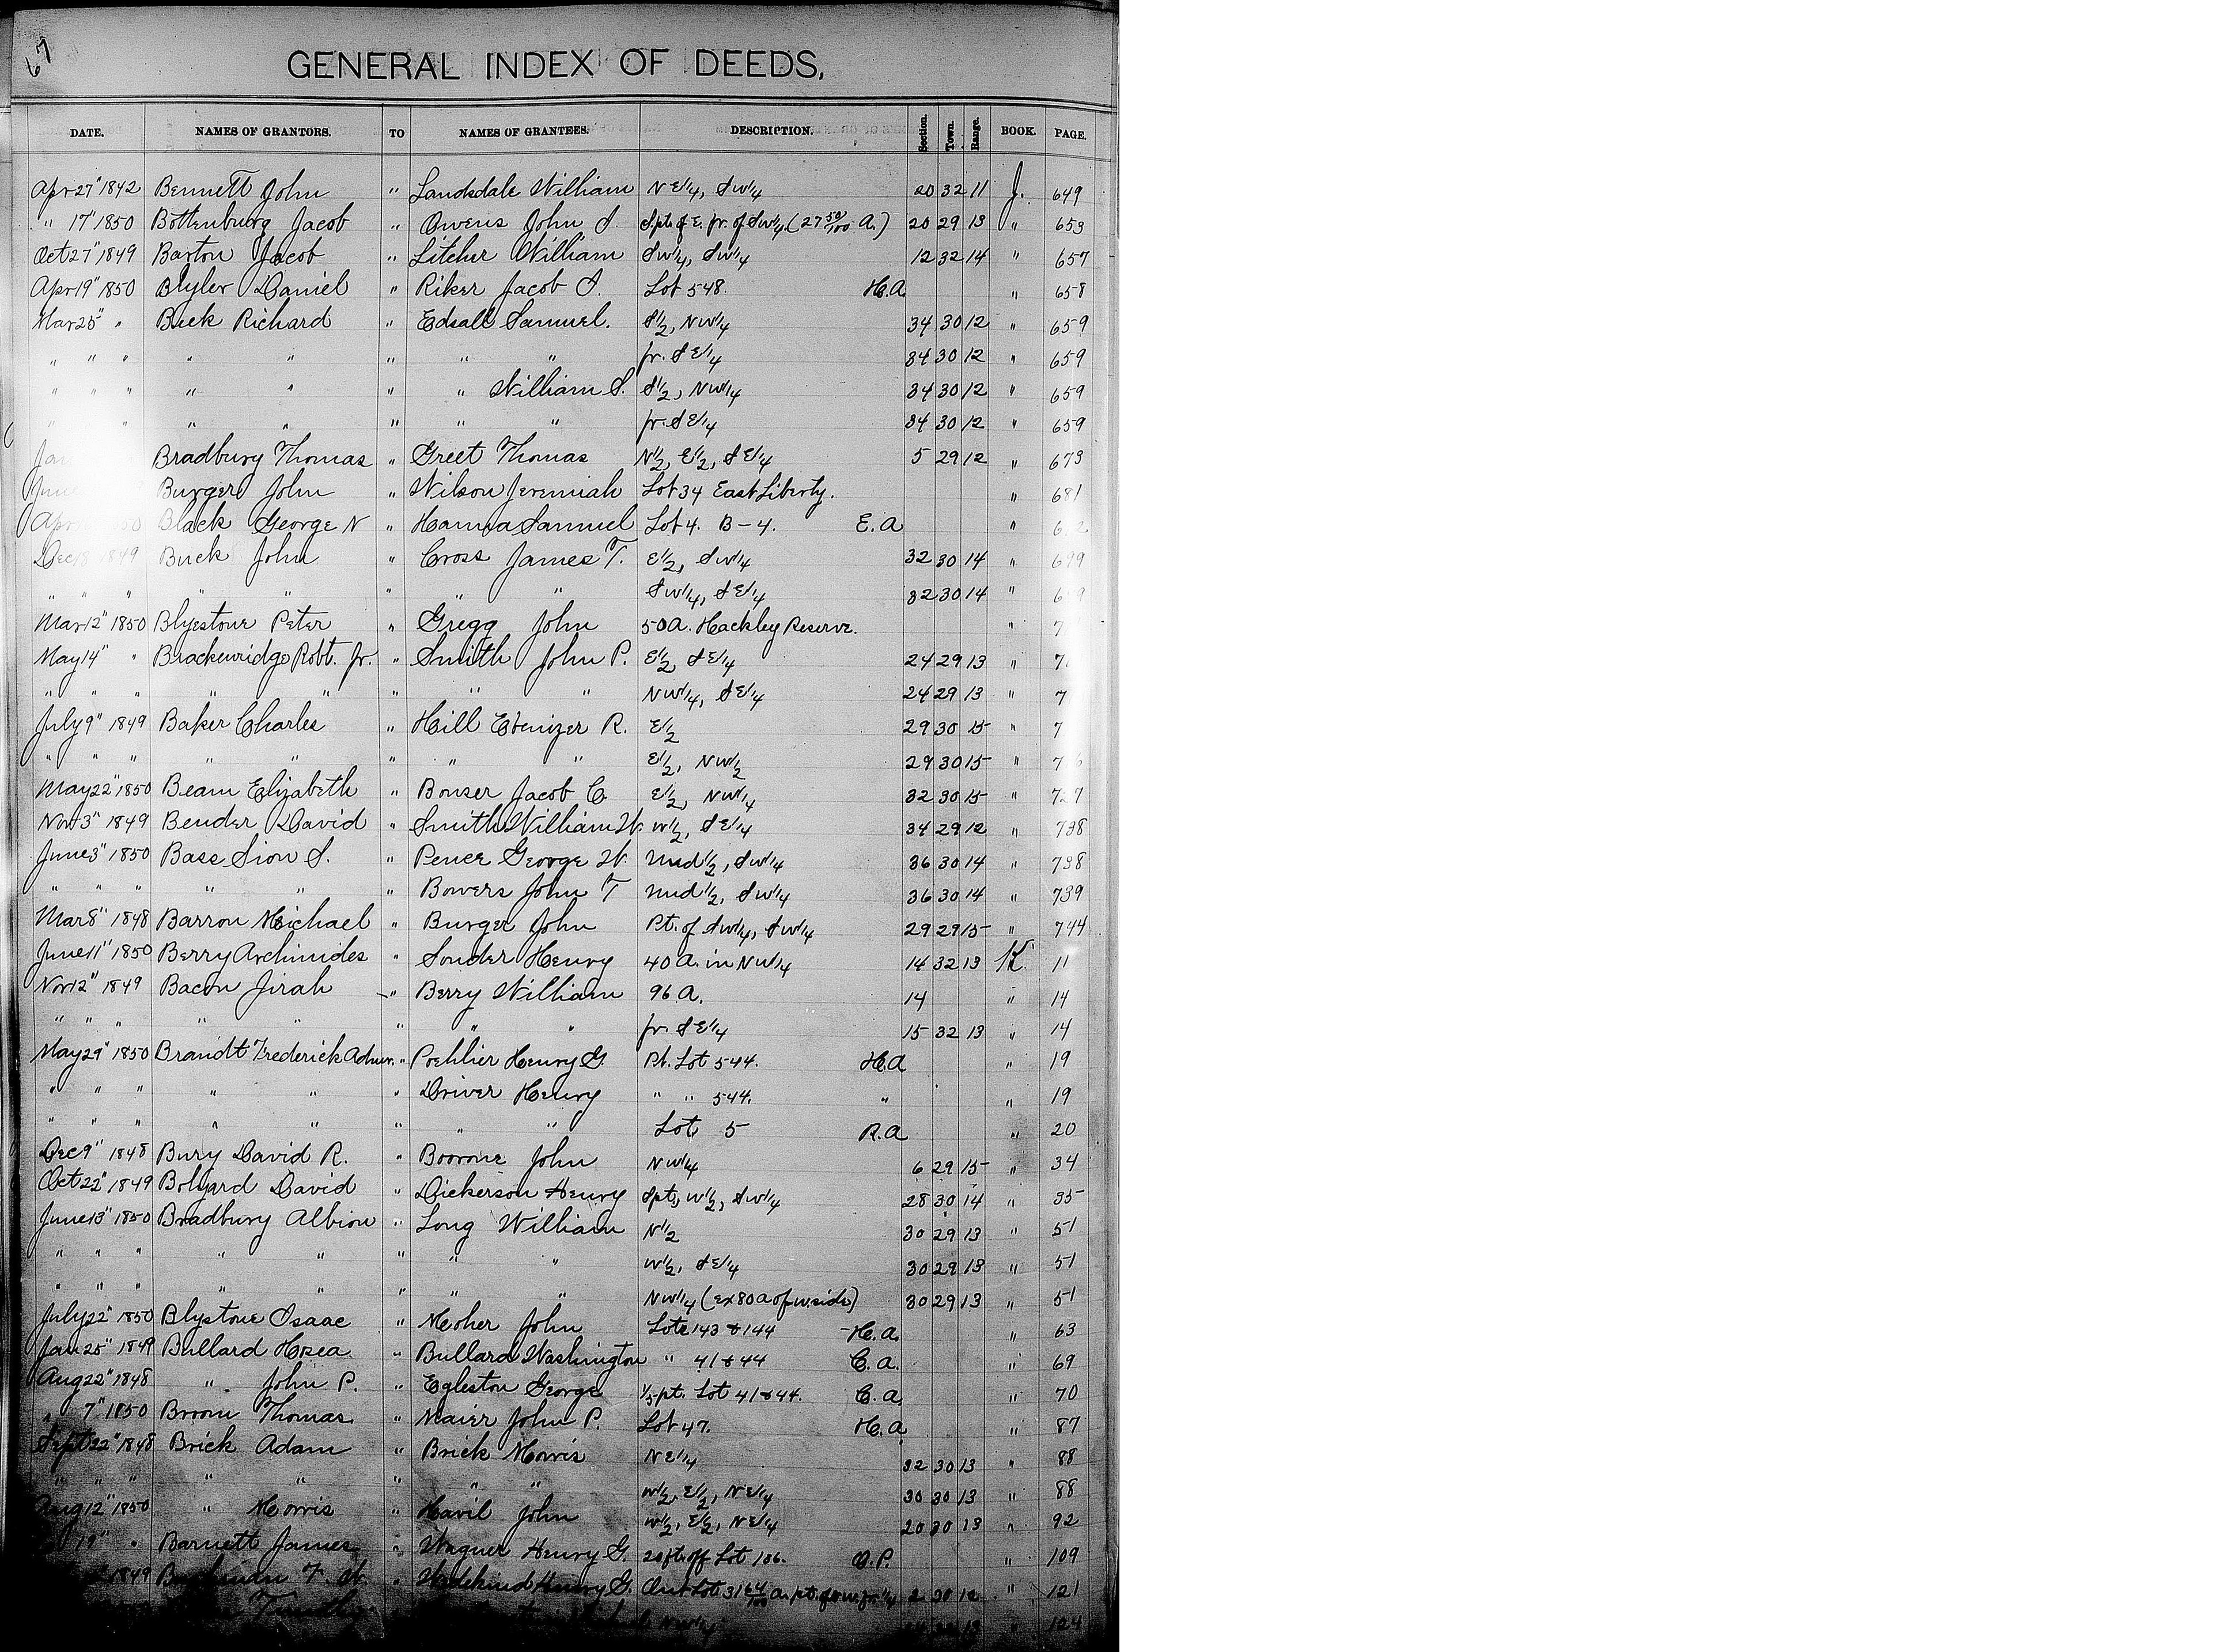 67
GENERAL INDEX OF DEEDS.
DATE. NAMES OF GRANTORS. TO NAMES OF GRANTEES. DESCRIPTION. Section. Town. Range. BOOK. PAGE.
Apr 27" 1842 Bennett John " Landsdale William N E 1/4, S W 1/4 20 32 11 J. 649
" 17" 1850 Bottenburg Jacob " Owens John S. S. pt. of E. fr. of S W 1/4 (27 50/100 A.) 20 29 13 " 653
Oct 27" 1849 Barton Jacob " Litcher William S W 1/4, S W 1/4 12 32 14 " 657
Apr 19" 1850 Blyler Daniel " Riker Jacob S. Lot 548. H. A " 658
Mar 25" " Beek Richard " Edsall Samuel. S 1/2, N W 1/4 34 30 12 " 659
" " " " " " " " fr. S E 1/4 34 30 12 " 659
" " " " " " " William S. S 1/2, N W 1/4 34 30 12 " 659
" " " " " " " fr. S E 1/4 34 30 12 " 659
Jan Bradbury Thomas " Greet Thomas N 1/2, E 1/2, S E 1/4 5 29 12 " 673
June Burger John " Wilson Jeremiah Lot 34 East Liberty. " 681
Apr 50 Black George N " Hanna Samuel Lot 4. B - 4. E. A "
Dec 1849 Buck John " Cross James T. E 1/2, S W 1/4 32 30 14 " 699
" " " " " " " " S W 1/4, S E 1/4 32 30 14 "
Mar 12" 1850 Blyestone Peter " Gregg John 50 A. Hackley Reserve. "
May 14" " Brackenridge Robt. Jr. " Smith John P. E 1/2, S E 1/4 24 29 13 "
" " " " " " " " N W 1/4, S E 1/4 24 29 13 "
July 9" 1849 Baker Charles " Hill Ebenizer R. E 1/2 29 30 15 "
" " " " " " " " E 1/2, N W 1/2 29 30 15 "
May 22" 1850 Beam Elizabeth " Bonser Jacob C. E 1/2, N W 1/4 32 30 15 " 727
Nov 3" 1849 Bender David " Smith William W. W 1/2, S E 1/4 34 29 12 " 738
June 3" 1850 Bass Sion S. " Pence George W. Mid 1/2, S W 1/4 36 30 14 " 738
" " " " " " Bowers John T Mid 1/2, S W 1/4 36 30 14 " 739
Mar 8" 1848 Barron Michael " Burger John Pt. of S W 1/4, S W 1/4 29 29 15 " 744
June 11" 1850 Berry Archimides " Souder Henry 40 A. in N W 1/4 14 32 13 K. 11
Nov 12" 1849 Bacon Jirah " Berry William 96 A. 14 " 14
" " " " " " " " fr. S E 1/4 15 32 13 " 14
May 29" 1850 Brandt Frederick Admr. " Poehlier Henry G. Pt. Lot 544. H. A " 19
" " " " " " Driver Henry " " 544. " " 19
" " " " " " " " Lot 5 R. A " 20
Dec 9" 1848 Bury David R. " Boorone John N W 1/4 6 29 15 " 34
Oct 22" 1849 Bolyard David " Dickerson Henry S pt., W 1/2, S W 1/4 28 30 14 " 35
June 13" 1850 Bradbury Albion " Long William N 1/2 30 29 13 " 51
" " " " " " " " W 1/2, S E 1/4 30 29 13 " 51
" " " " " " " " N W 1/4 (ex 80 A of W. side) 30 29 13 " 51
July 22" 1850 Blystone Isaac " Moher John Lots 143 & 144 H. A. " 63
Jan 25" 1849 Bullard Hosea " Bullard Washington " 41 & 44 C. A. " 69
Aug 22" 1848 " John P. " Egleston George 1/5 pt. Lot 41 & 44. C. A. " 70
" 7" 1850 Broom Thomas " Maier John P. Lot 47. H. A " 87
Sept 22" 1848 Brick Adam " Brick Morris N E 1/4 32 30 13 " 88
" " " " " " " " W 1/2, E 1/2, N E 1/4 30 30 13 " 88
Aug 12" 1850 " Morris " Havil John W 1/2, E 1/2, N E 1/4 20 30 13 " 92
19" " Barnett James " Wagner Henry G. 20 ft. off Lot 106. O. P. " 109
1849 " Henry G. Out Lot 3 2 30 12 " 121
N W 1/4 " 124